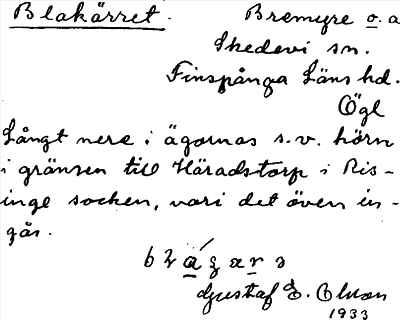 Blakärret. Bremyre o. a
Skedevi sn.
Finspånga Läns hd.
Ögl
Långt nere i ägornas s.v. hörn
i gränsen till Häradstorp i Ris-
inge socken, vari det även in-
går.
Gustaf E. Olsson
1933